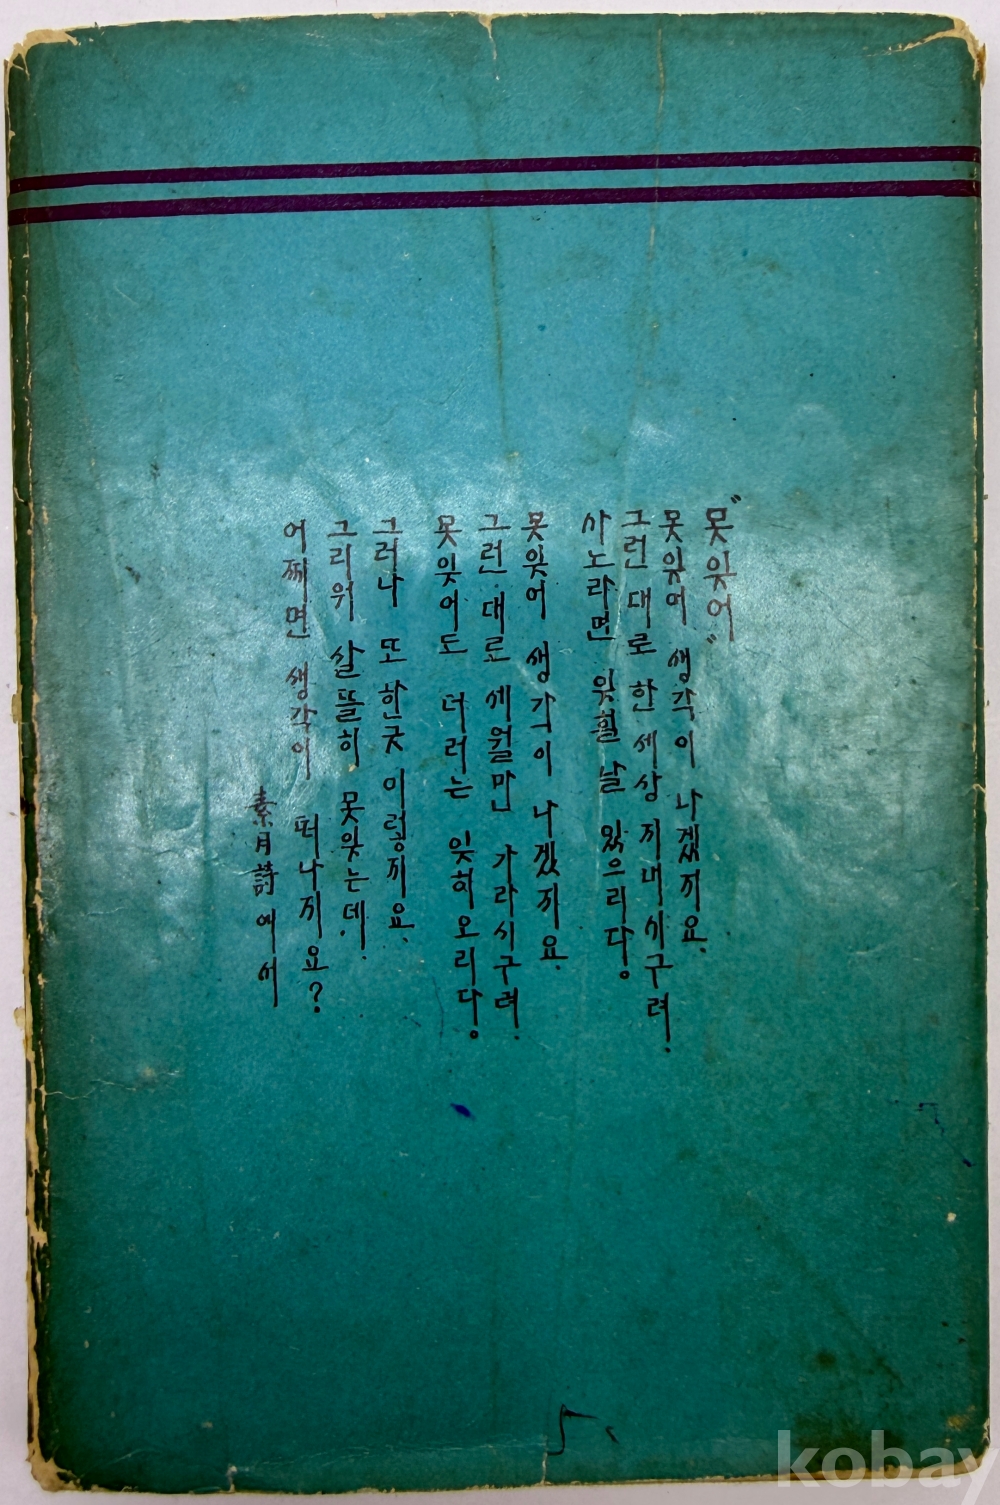 “못잊어”
못잊어 생각이 나겠지요.
그런대로 한 세상 지내시구려.
사노라면 잊힐 날 있으리다.
못잊어 생각이 나겠지요.
그런대로 세월만 가라시구려.
못잊어도 더러는 잊히오리다.
그러나 또 한긋 이렇지요.
그리워 살뜰히 못잊는데.
어쩨면 생각이 떠나지요?
素月詩에서
5
kobay